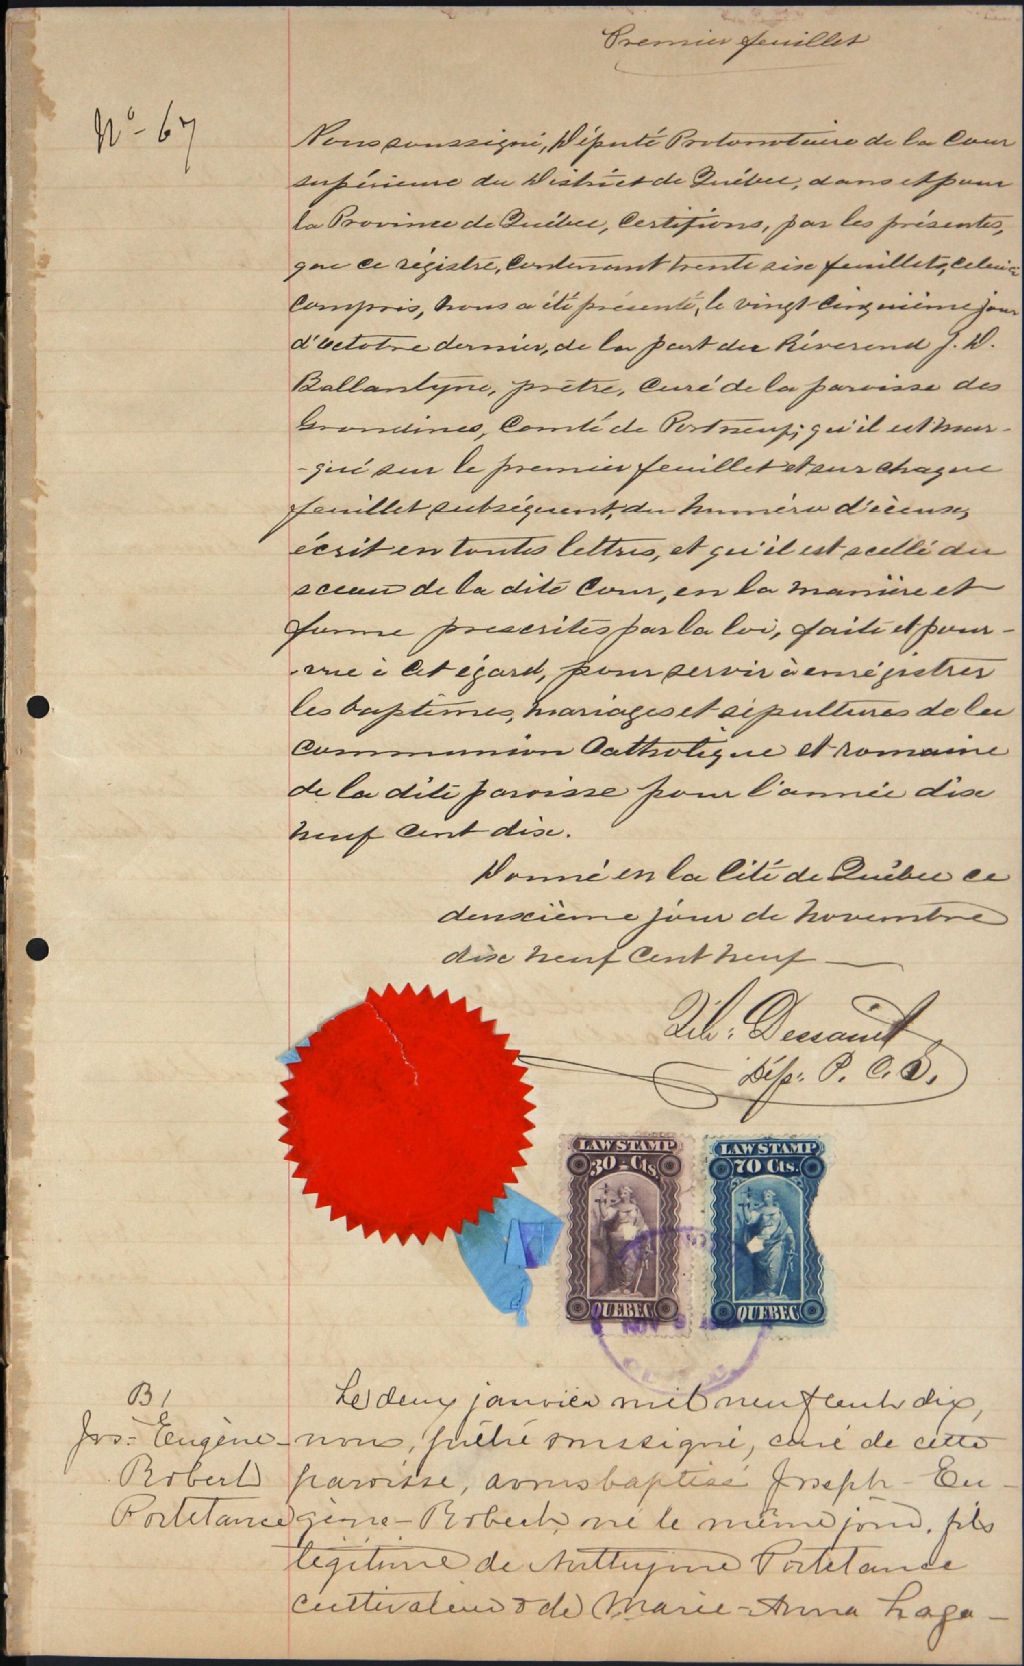 Premier feuillet
No- 67
Nous soussigné, Député Protonotaire de la Cour
supérieure du District de Québec, dans et pour
la Province de Québec, Certifions, par les présentes,
que ce régistre, Contenant trente six feuillets, celui-ci
compris, nous a été présenté, le vingt-cinquième jour
d'octobre dernier, de la part du Révérend J. D.
Ballantyne, prêtre, Curé de la paroisse des
Grondines, Comté de Portneuf; qu'il est mar-
-qué sur le premier feuillet et sur chaque
feuillet subséquent, du numéro d'iceux,
écrit en toutes lettres, et qu'il est scellé du
sceau de la dite Cour, en la manière et
forme prescrites par la loi, faite et pour-
-vue à cet égard, pour servir à enrégistrer
les baptêmes, mariages et sépultures de la
Communion Catholique et romaine
de la dite paroisse pour l'année dix
neuf cent dix.
Donné en la Cité de Québec ce
deuxième jour de novembre
dix neuf cent neuf
Dép. P. C. S.
LAW STAMP
30-Cts
QUEBEC
LAW STAMP
70 Cts.
QUEBEC
NOV
B1
Jos: Eugène-
Robert
Portelance
Le deux janvier mil neuf cent dix,
nous, prêtre soussigné, curé de cette
paroisse, avons baptisé Joseph-Eu-
gène-Robert, né le même jour, fils
légitime de Portelance
cultivateur & de Marie-Anna Laga-